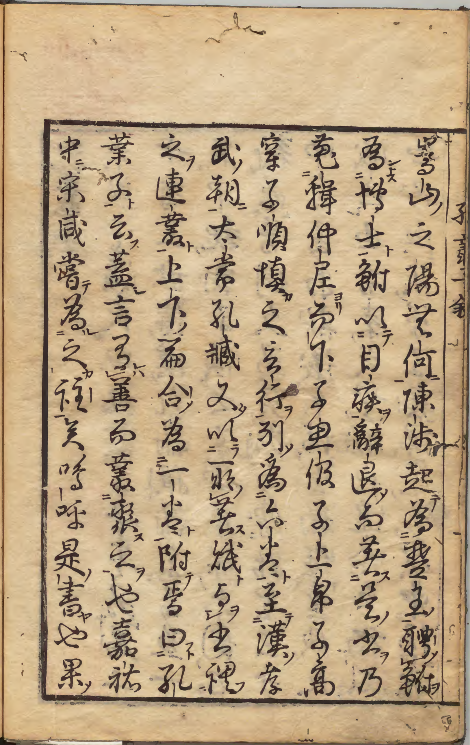 嵩山之陽無何陳涉起為楚王聘鮒
為博士鮒以目疾辭退而著是書乃
蒐輯仲尼而下子思伋子上帛子高
穿子順慎之言行列為六卷至漢孝
武朝大常孔臧又以所著賦與書謂
之連叢上下篇合為一卷附焉曰孔
叢子云蓋言有善而叢聚之也嘉祐
中宋咸嘗為之註矣嗚呼是書也果